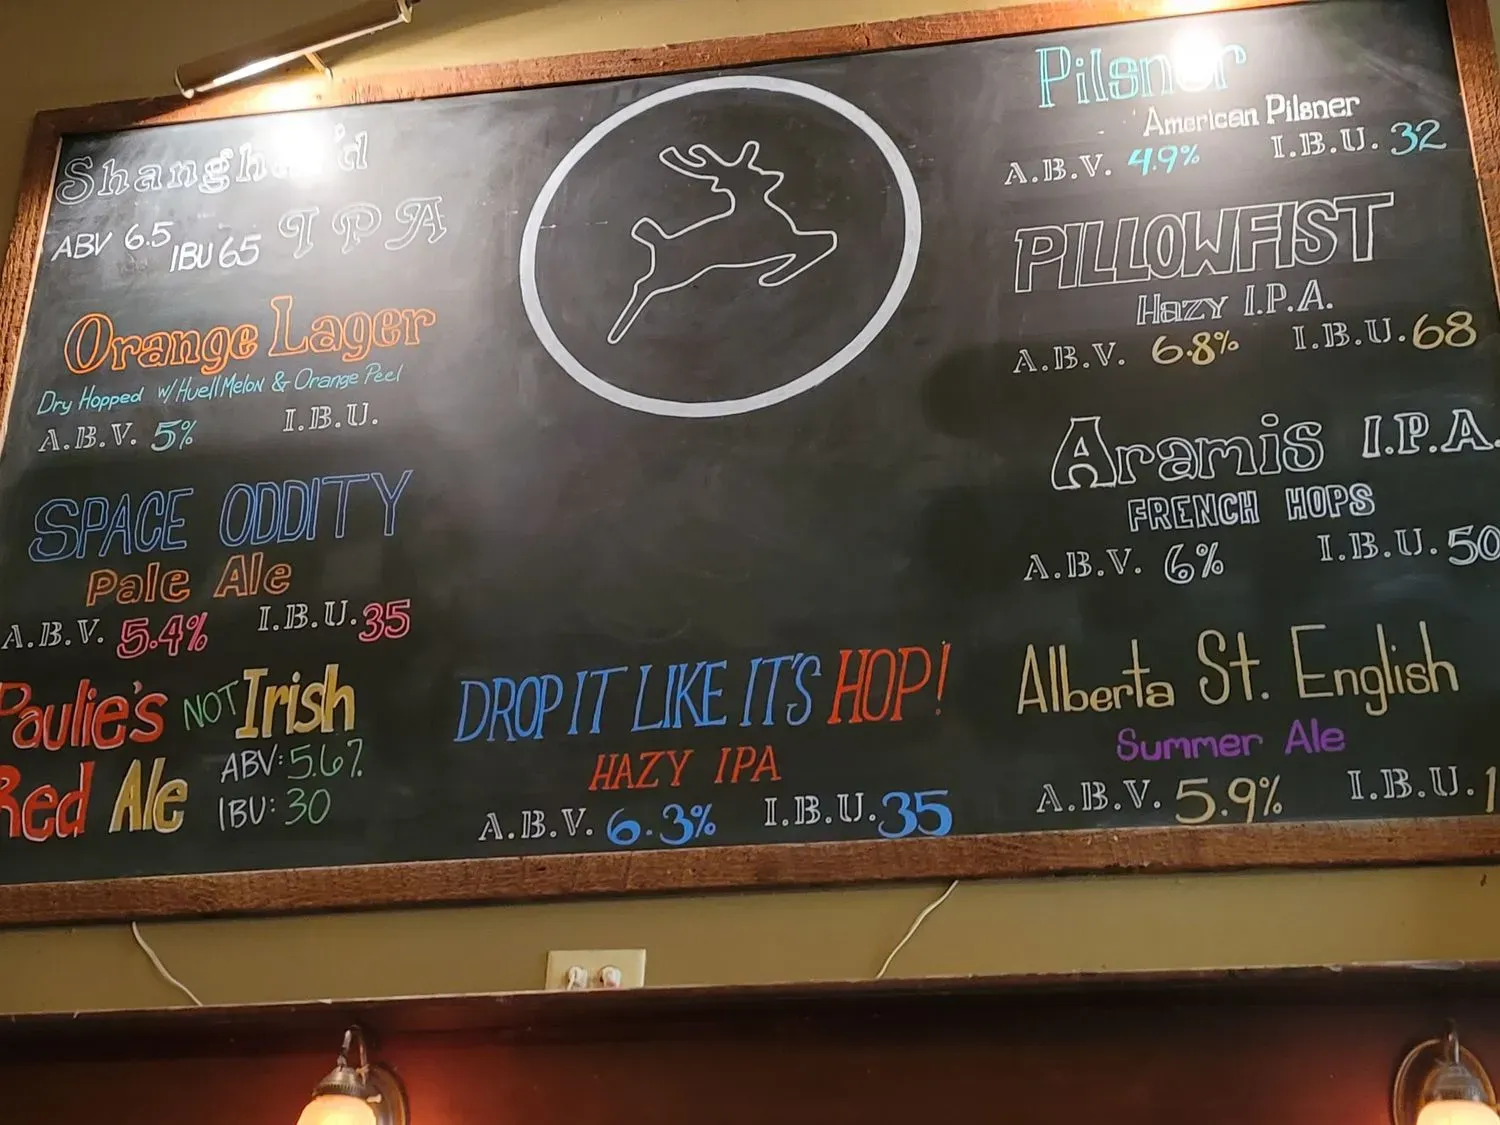 Shanghai'd
ABV 6.5 IBU 65 IPA
Orange Lager
Dry Hopped w/ Huell Melon & Orange Peel
A.B.V. 5% I.B.U.
SPACE ODDITY
Pale Ale
A.B.V. 5.4% I.B.U. 35
Paulie's NOT Irish
Red Ale
ABV: 5.6%
IBU: 30
DROP IT LIKE IT'S HOP!
HAZY IPA
A.B.V. 6.3% I.B.U. 35
Pilsner
American Pilsner
A.B.V. 4.9% I.B.U. 32
PILLOWFIST
Hazy I.P.A.
A.B.V. 6.8% I.B.U. 68
Aramis I.P.A.
FRENCH HOPS
A.B.V. 6% I.B.U. 50
Alberta St. English
Summer Ale
A.B.V. 5.9% I.B.U.